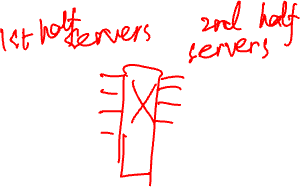 1st half servers
2nd half
servers